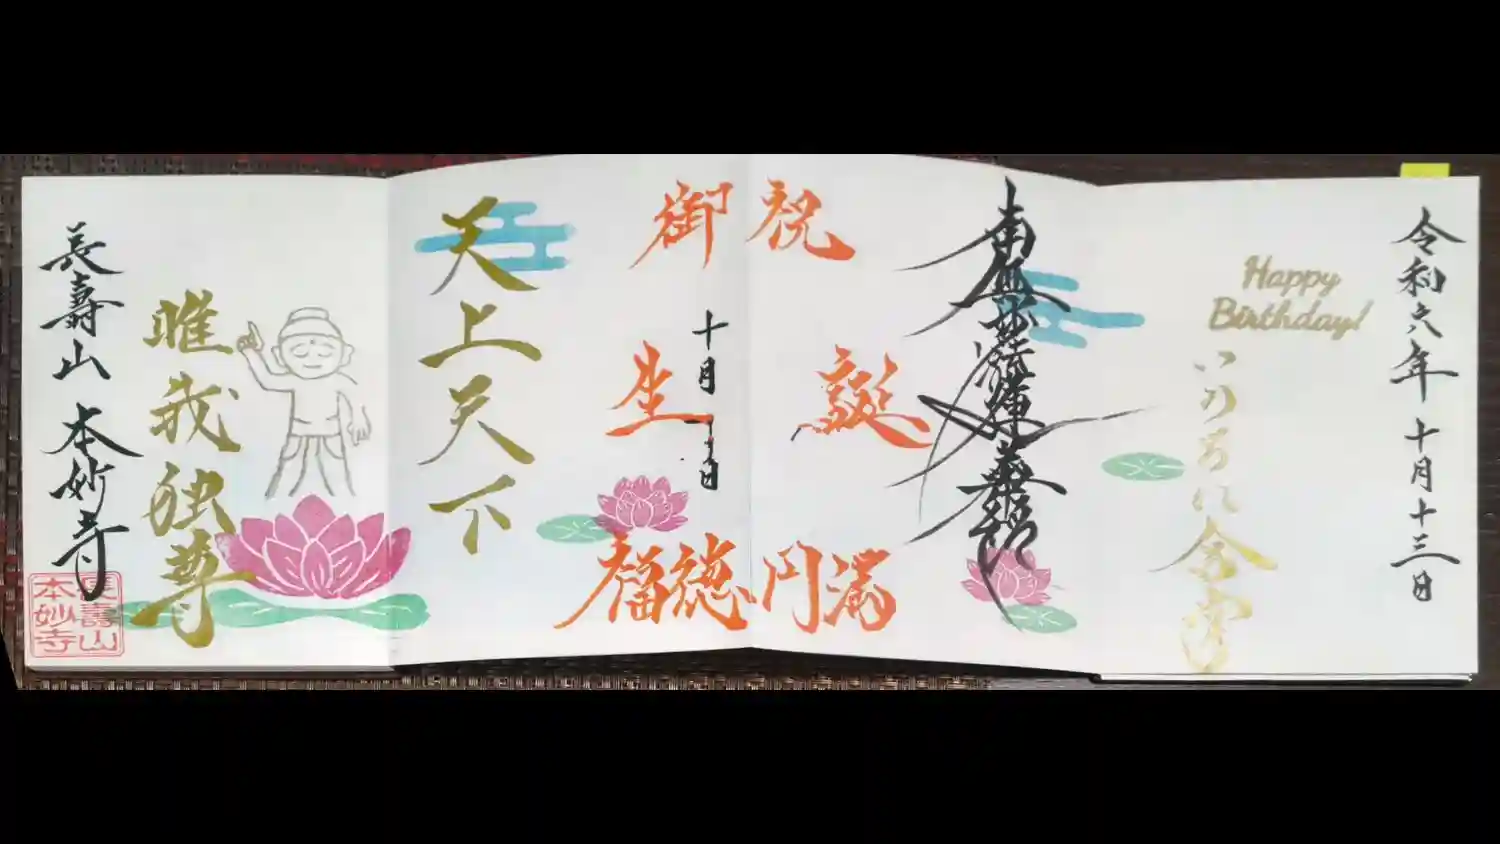 令和六年十月十三日
Happy
Birthday!
いのちに合掌
南無妙法蓮華経
祝
御
誕
生
福徳円満
十月
天上天下
唯我独尊
長壽山 本妙寺
長壽山
本妙寺